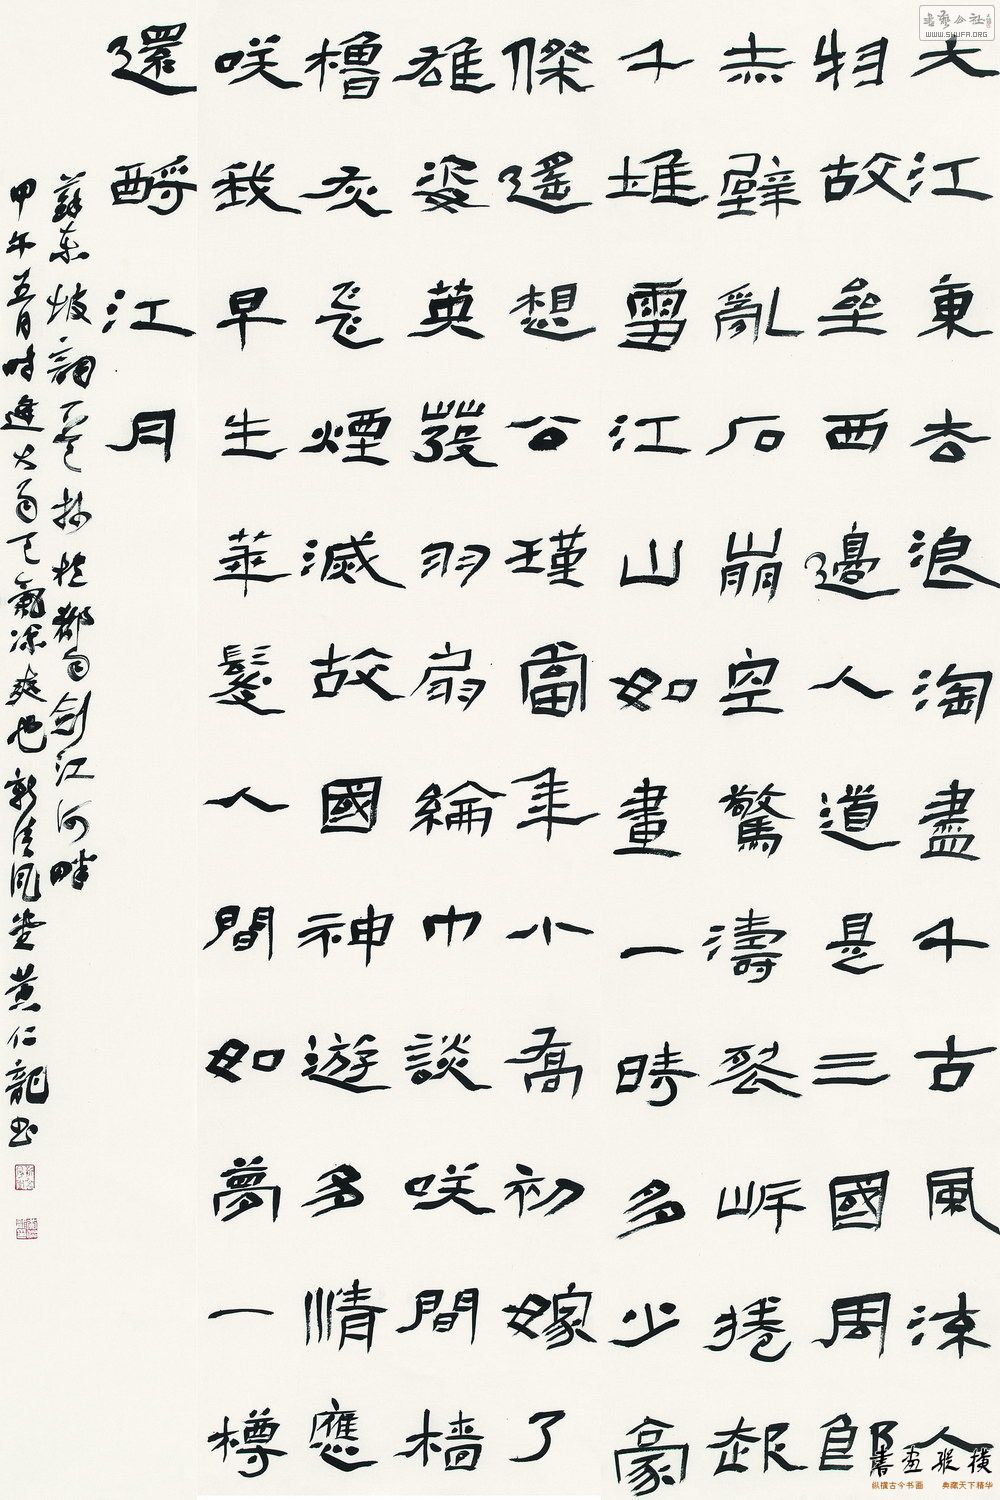 大江東去浪淘盡千古風流人
物故壘西邊人道是三國周郎
赤壁亂石崩空驚濤裂岸捲起
千堆雪江山如畫一時多少豪
傑遙想公瑾當年小喬初嫁了
雄姿英發羽扇綸巾談咲間檣
櫓灰飛煙滅故國神遊多情應
咲我早生華髮人間如夢一樽
還酹江月
蘇東坡詞於都匀劍江河畔
甲午五月時逢大雨天氣涼爽也清風堂黃仁龍書
书艺公社
WWW.SHUFA.ORG
書画縱橫
纵横古今书画 典藏天下精华